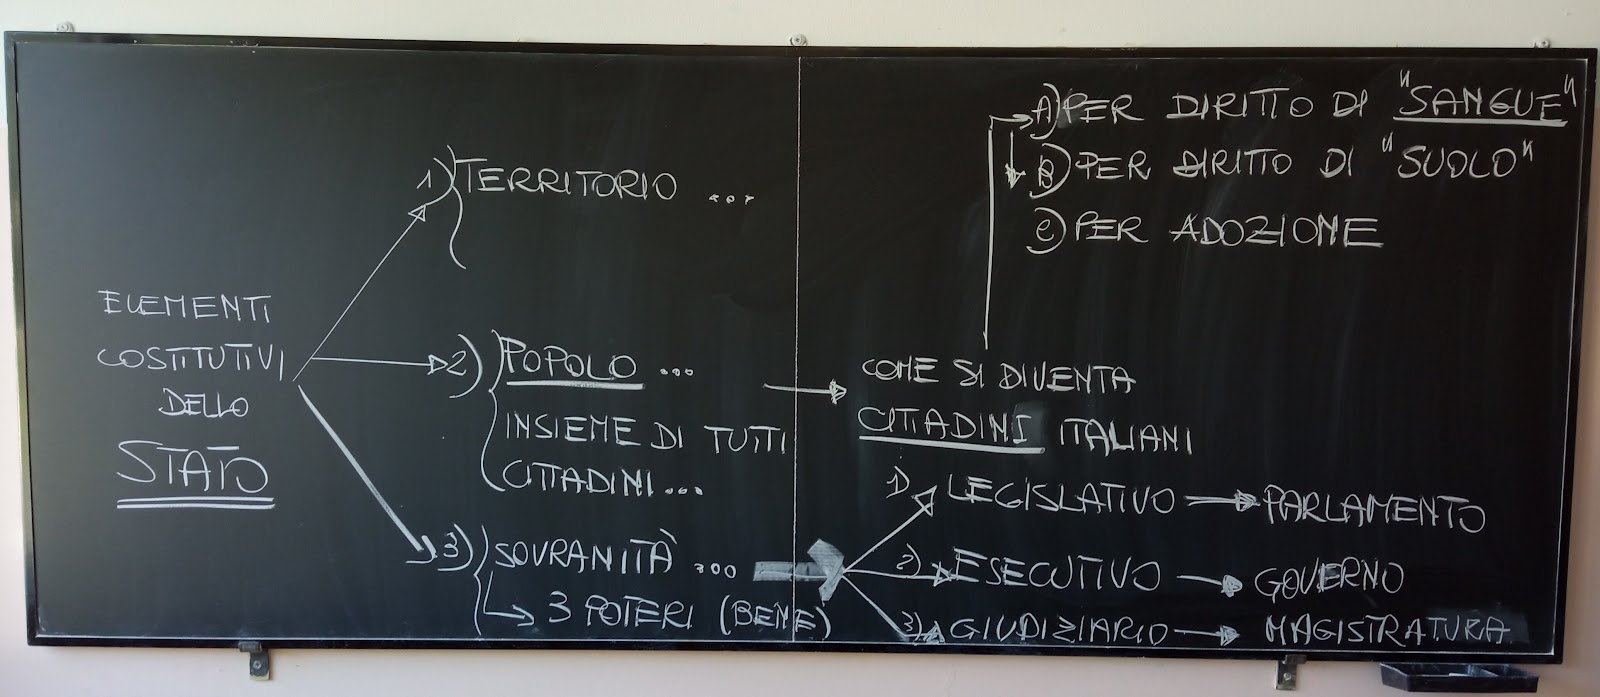 ELEMENTI
COSTITUTIVI
DELLO
STATO
1) TERRITORIO ...
2) POPOLO ...
INSIEME DI TUTTI
CITTADINI ...
3) SOVRANITÀ ...
3 POTERI (BENE)
COME SI DIVENTA
CITTADINI ITALIANI
A) PER DIRITTO DI "SANGUE"
B) PER DIRITTO DI "SUOLO"
C) PER ADOZIONE
1) LEGISLATIVO → PARLAMENTO
2) ESECUTIVO → GOVERNO
3) GIUDIZIARIO → MAGISTRATURA